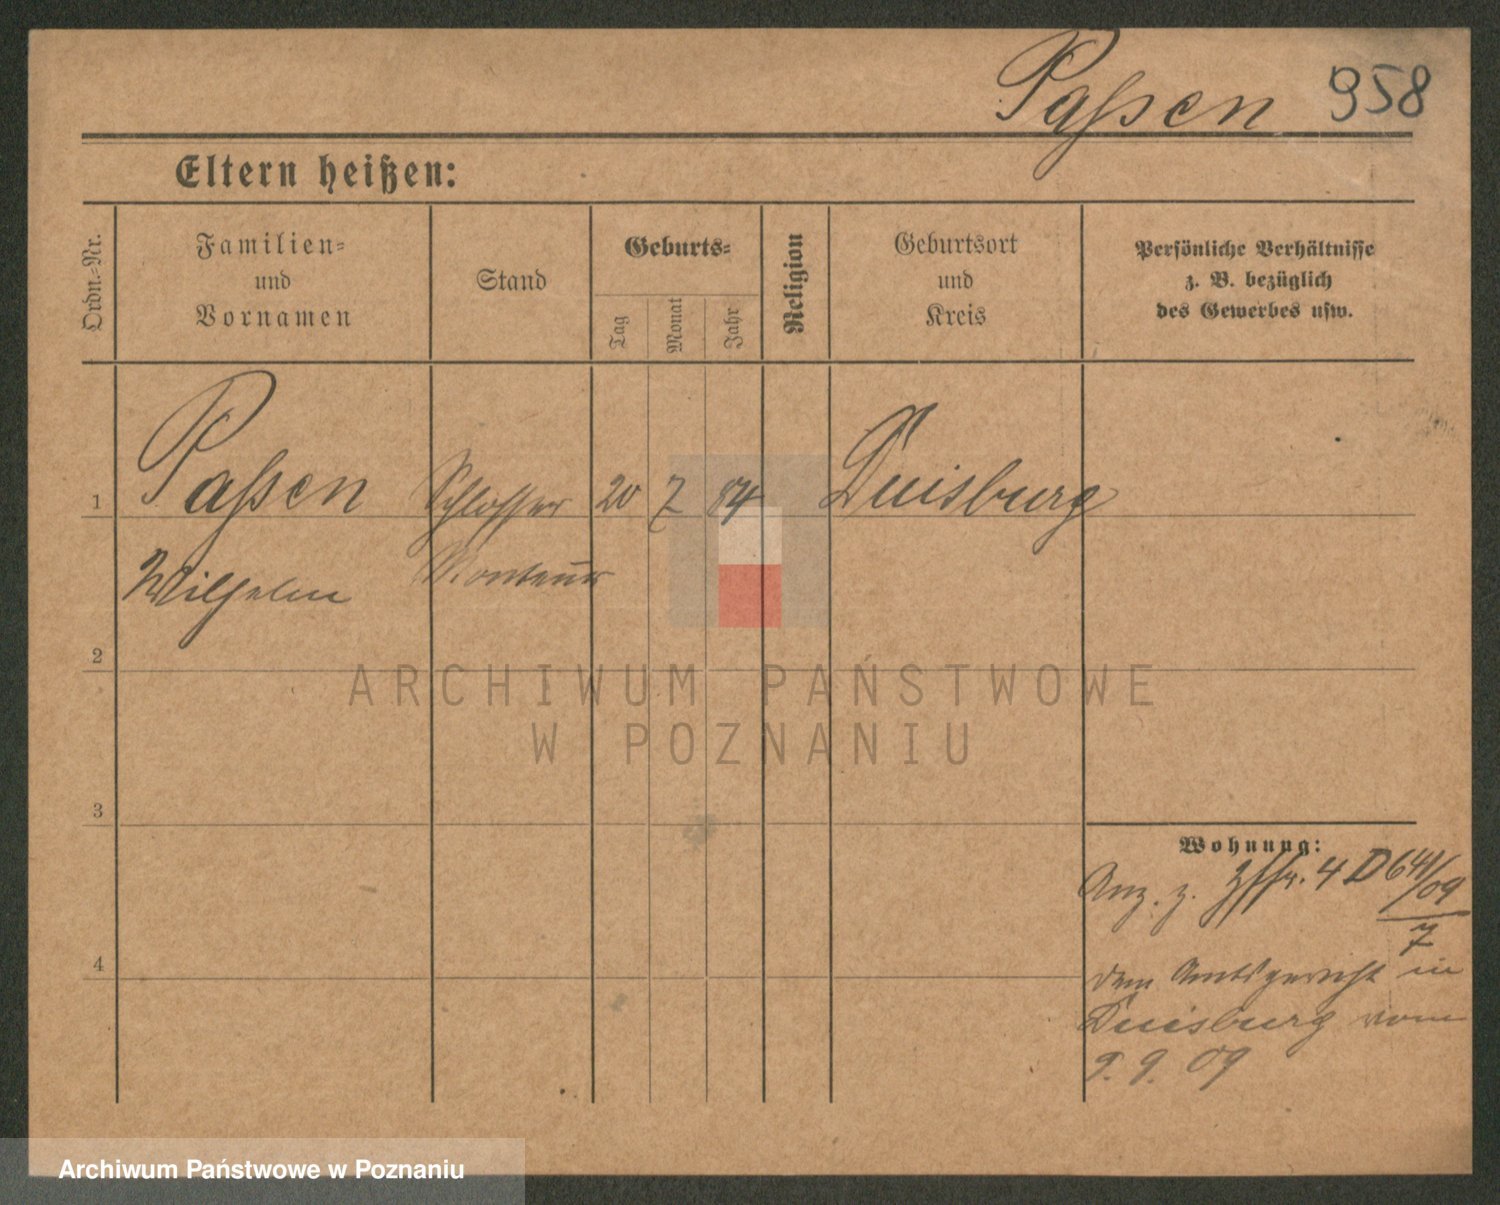 Paßen 958
Eltern heißen:
Ordn.=Nr.
Familien=
und
Vornamen
Stand
Geburts=
Tag
Monat
Jahr
Religion
Geburtsort
und
Kreis
Persönliche Verhältnisse
z. B. bezüglich
des Gewerbes usw.
1 Paßen Schlosser 20 7 84 Duisburg
Wilhelm Monteur
2
ARCHIWUM PAŃSTWOWE
W POZNANIU
3
Wohnung:
Anz. z. 4 D 641/09
7
dem Amtsgericht in
4
Duisburg vom
9. 9. 09
Archiwum Państwowe w Poznaniu